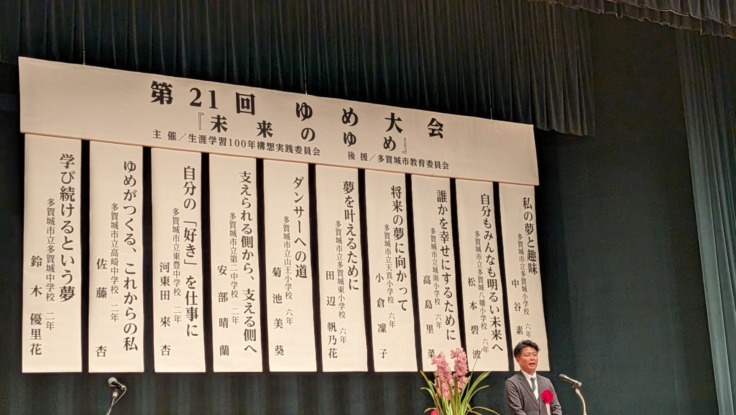 第21回 ゆめ大会
『未来のゆめ』
主催／生涯学習100年構想実践委員会 後援／多賀城市教育委員会
私の夢と趣味
多賀城市立多賀城小学校 六年
中谷 素
自分もみんなも明るい未来へ
多賀城市立多賀城八幡小学校 六年
松本 碧波
誰かを幸せにするために
多賀城市立城南小学校 六年
高島 里菜
将来の夢に向かって
多賀城市立天真小学校 六年
小倉 凜子
夢を叶えるために
多賀城市立多賀城東小学校 六年
田辺 帆乃花
ダンサーへの道
多賀城市立山王小学校 六年
菊池 美葵
支えられる側から、支える側へ
多賀城市立第二中学校 二年
安部 晴蘭
自分の「好き」を仕事に
多賀城市立東豊中学校 二年
河東田 来杏
ゆめがつくる、これからの私
多賀城市立高崎中学校 二年
佐藤 杏
学び続けるという夢
多賀城市立多賀城中学校 二年
鈴木 優里花